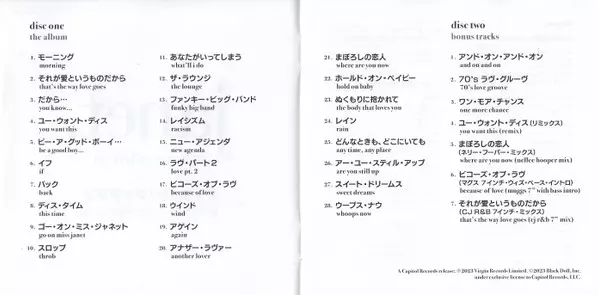 disc one
the album
1. モーニング
morning
2. それが愛というものだから
that's the way love goes
3. だから…
you know...
4. ユー・ウォント・ディス
you want this
5. ビー・ア・グッド・ボーイ…
be a good boy...
6. イフ
if
7. バック
back
8. ディス・タイム
this time
9. ゴー・オン・ミス・ジャネット
go on miss janet
10. スロッブ
throb
11. あなたがいってしまう
what'll i do
12. ザ・ラウンジ
the lounge
13. ファンキー・ビッグ・バンド
funky big band
14. レイシズム
racism
15. ニュー・アジェンダ
new agenda
16. ラヴ・パート2
love pt. 2
17. ビコーズ・オブ・ラヴ
because of love
18. ウインド
wind
19. アゲイン
again
20. アナザー・ラヴァー
another lover
21. まぼろしの恋人
where are you now
22. ホールド・オン・ベイビー
hold on baby
23. ぬくもりに抱かれて
the body that loves you
24. レイン
rain
25. どんなときも、どこにいても
any time, any place
26. アー・ユー・スティル・アップ
are you still up
27. スイート・ドリームス
sweet dreams
28. ウープス・ナウ
whoops now
disc two
bonus tracks
1. アンド・オン・アンド・オン
and on and on
2. 70's ラヴ・グルーヴ
70's love groove
3. ワン・モア・チャンス
one more chance
4. ユー・ウォント・ディス (リミックス)
you want this (remix)
5. まぼろしの恋人
(ネリー・フーパー・ミックス)
where are you now (nellee hooper mix)
6. ビコーズ・オブ・ラヴ
(マグス 7インチ・ウィズ・ベース・イントロ)
because of love (muggs 7" with bass intro)
7. それが愛というものだから
(CJ R&B 7インチ・ミックス)
that's the way love goes (cj r&b 7" mix)
A Capitol Records release. ℗2023 Virgin Records Limited. ©2023 Black Doll, Inc.
under exclusive license to Capitol Records, LLC.